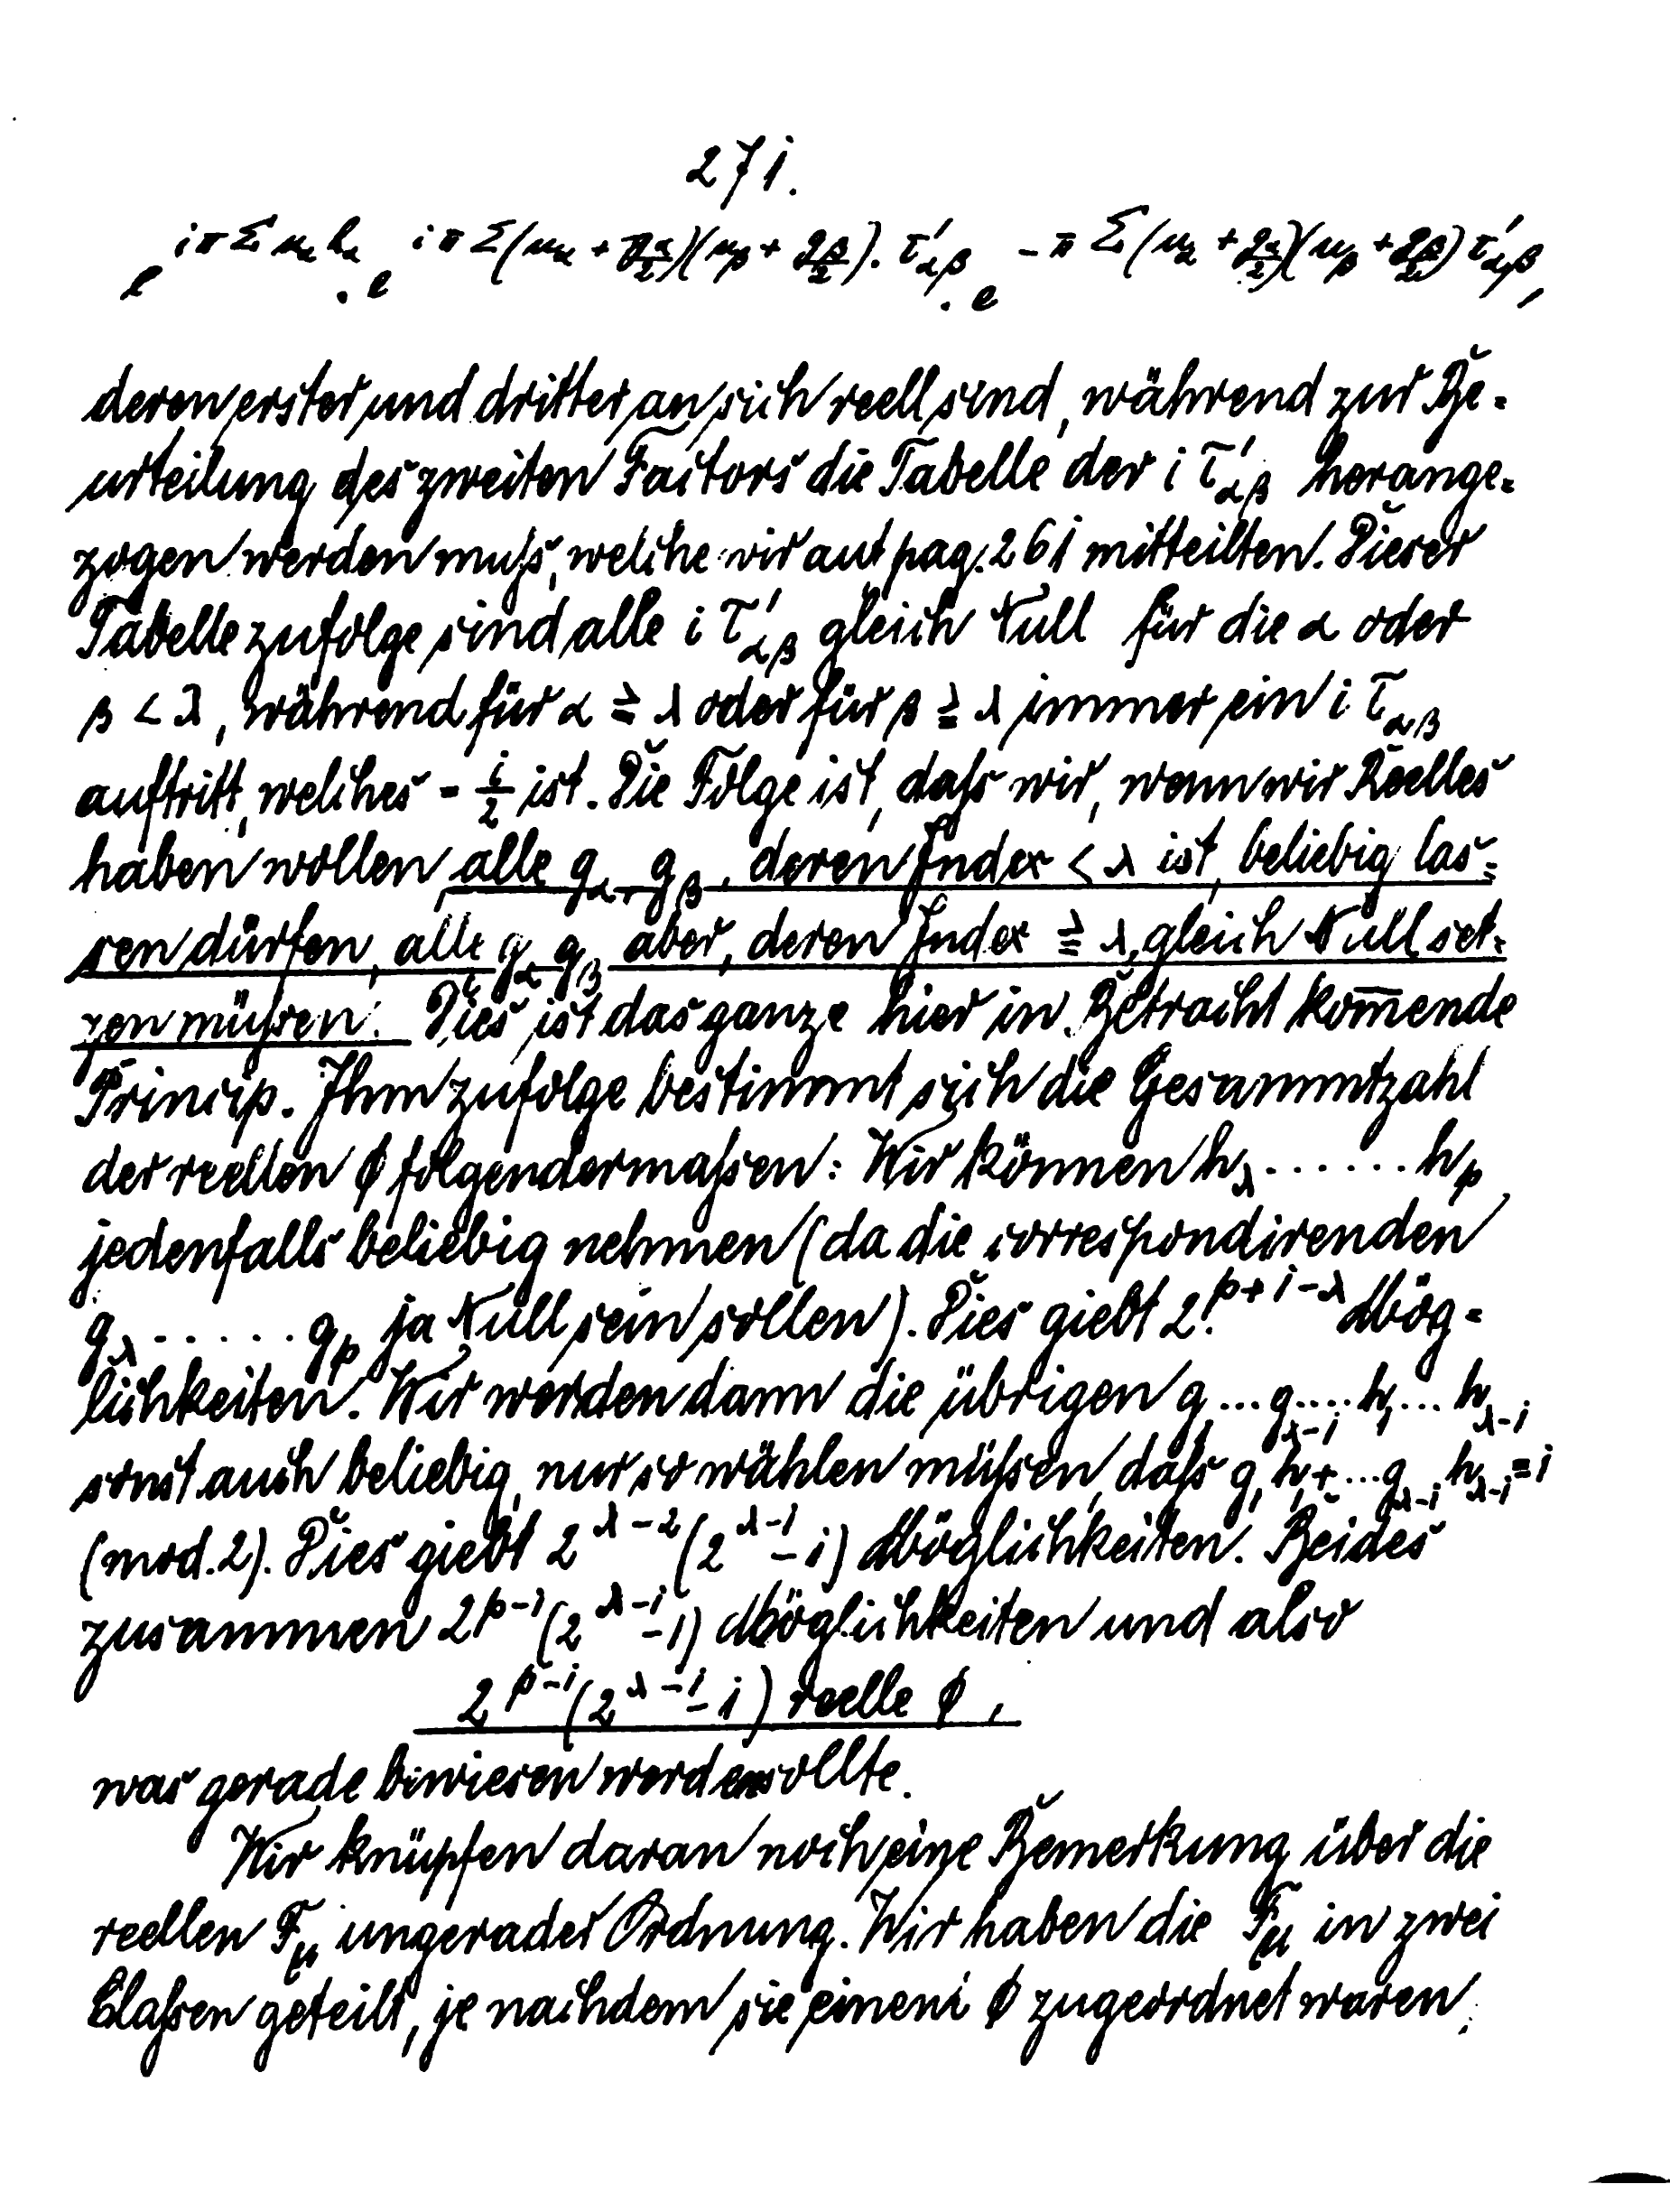 271.
e^{iπ Σ n_α h_α} . e^{iπ Σ (n_α + g_α/2)(n_β + g_β/2) . τ'_{αβ}} . e^{-π Σ (n_α + g_α/2)(n_β + g_β/2) τ'_{αβ}},
deren erster und dritter an sich reell sind, während zur Be-
urteilung des zweiten Factors die Tabelle der i τ'_{αβ} herange-
zogen werden muſs, welche wir auf pag. 261 mitteilten. Dieser
Tabelle zufolge sind alle i τ'_{αβ} gleich Null für die α oder
β < λ, während für α ≧ λ oder für β ≧ λ immer ein i τ_{αβ}
auftritt, welches = i/2 ist. Die Folge ist, daſs wir, wenn wir Reelles
haben wollen, alle g_α, g_β, deren Index < λ ist, beliebig las-
sen dürfen, alle g_α g_β aber, deren Index ≧ λ, gleich Null set-
zen müſsen. Dies ist das ganze hier in Betracht kom̅ende
Princip. Ihm zufolge bestimmt sich die Gesammtzahl
der reellen ϕ folgendermaſsen: Wir können h_λ ...... h_p
jedenfalls beliebig nehmen (da die correspondirenden
g_λ ...... g_p ja Null sein sollen). Dies giebt 2^{p+1-λ} Mög-
lichkeiten. Wir werden dann die übrigen g_1 ... g_{λ-1} ... h_1 ... h_{λ-1}
sonst auch beliebig, nur so wählen müſsen, daſs g_1 h_1 + ... g_{λ-1} h_{λ-1} = 1
(mod. 2). Dies giebt 2^{λ-2} (2^{λ-1} - 1) Möglichkeiten. Beides
zusammen 2^{p-1} (2^{λ-1} - 1) Möglichkeiten und also
2^{p-1} (2^{λ-1} - 1) reelle ϕ,
was gerade bewiesen werden sollte.
Wir knüpfen daran noch eine Bemerkung über die
reellen F_μ ungerader Ordnung. Wir haben die F_μ in zwei
Claſsen geteilt, je nachdem sie einem ϕ zugeordnet waren,